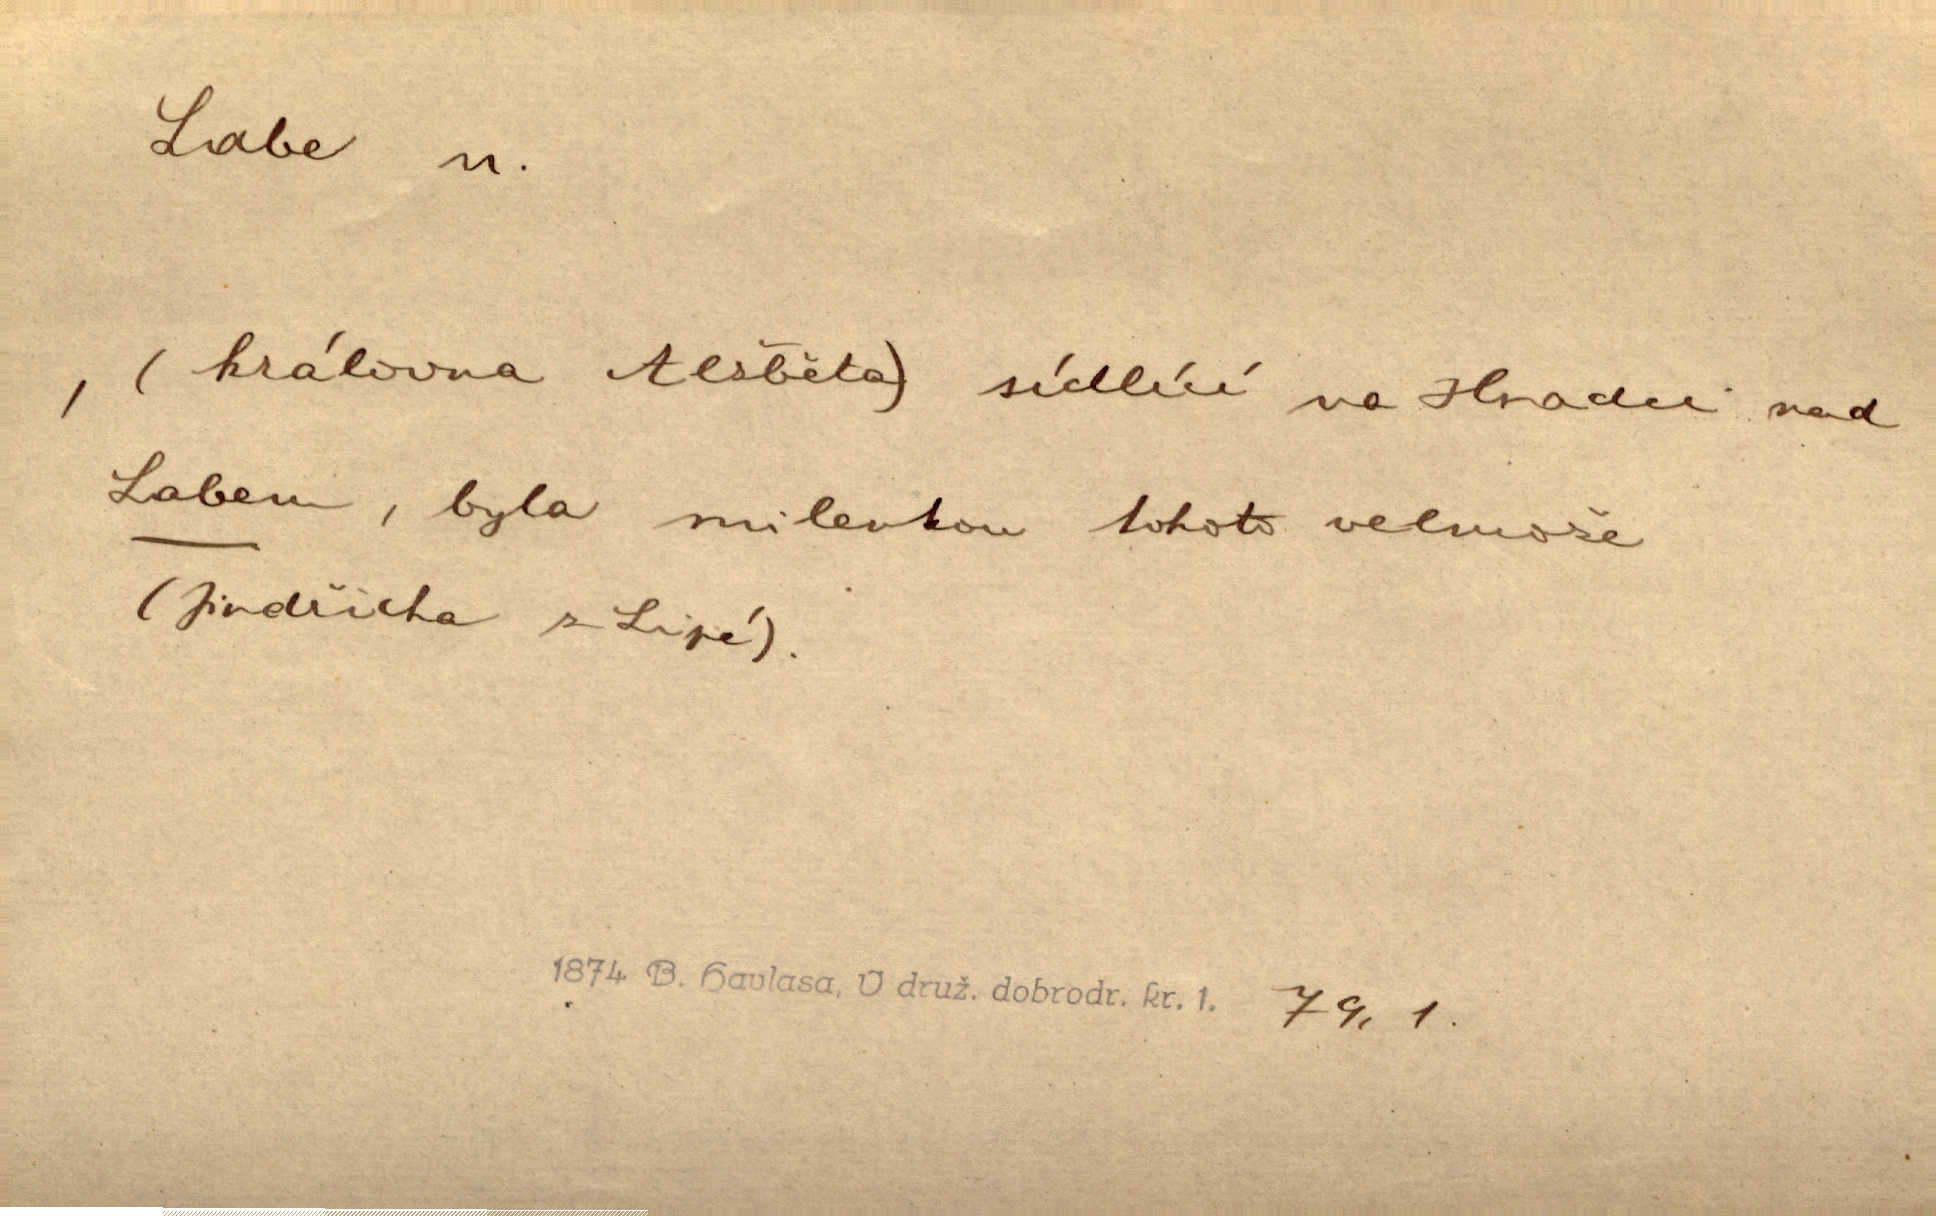 Labe n.
, (královna Alžběta) sídlící na Hradci nad
Labem, byla milenkou tohoto velmože
(Jindřicha z Lipé).
1874 B. Havlasa, V druž. dobrodr. kr. 1. 79, 1.